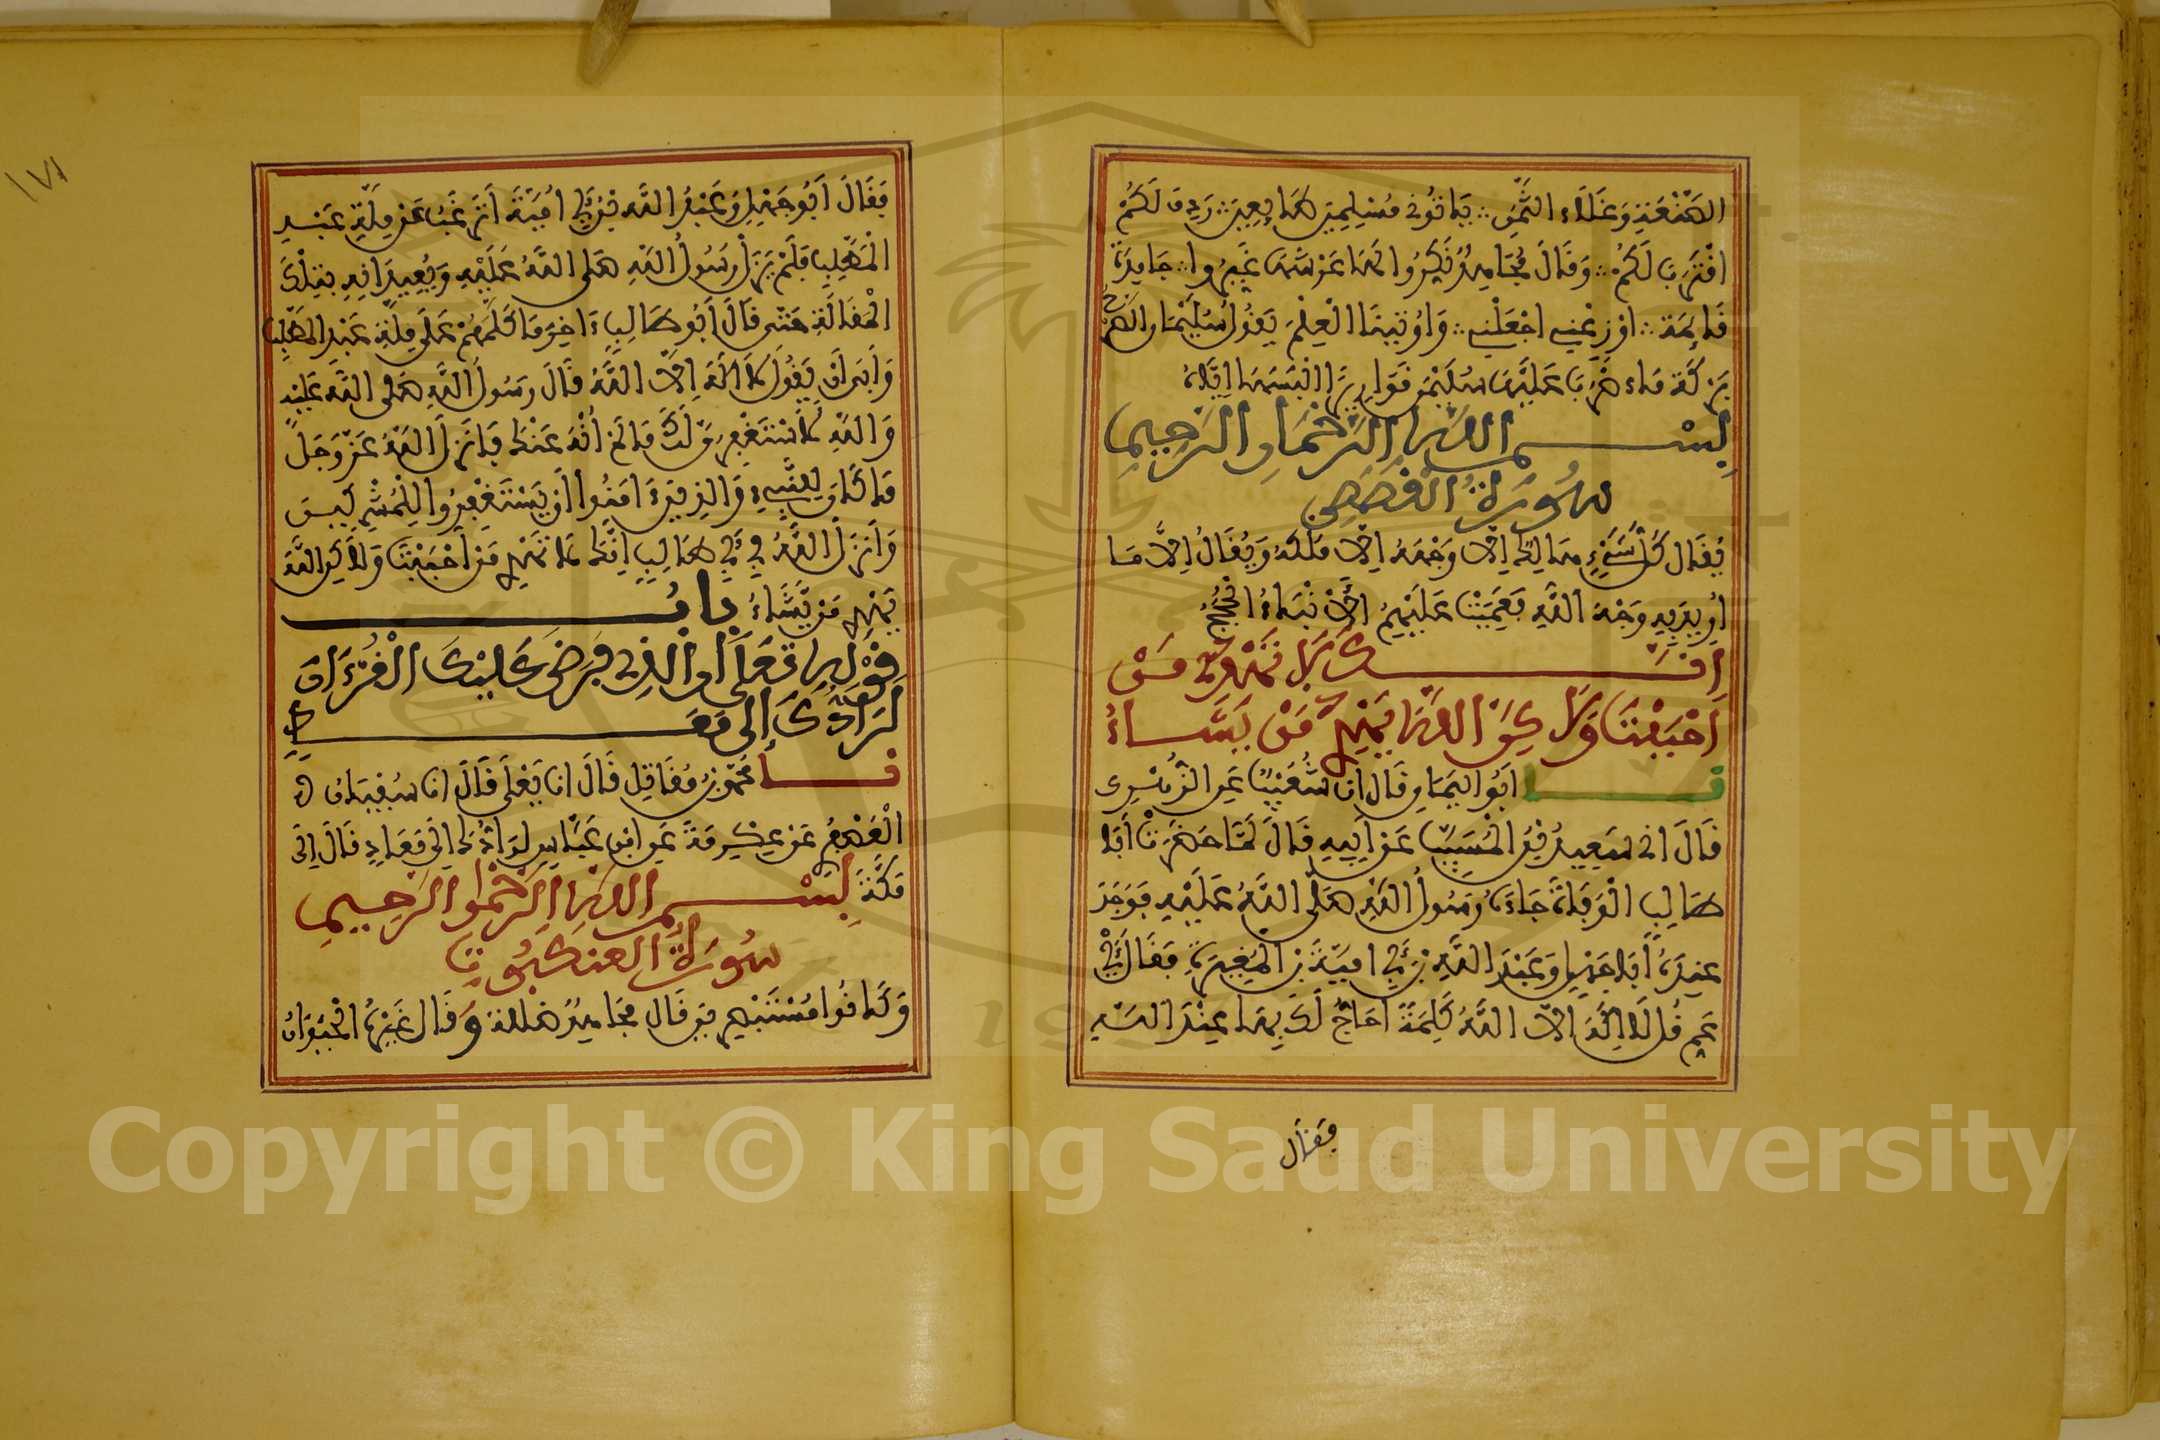 الصَّنْعَةِ وَغَلَاءِ الثَّمَنِ ؞ يَاتُونِي مُسْلِمِينَ طَائِعِينَ ؞ رَدِفَ لَكُمْ
اقْتَرَبَ لَكُمْ ؞ وَقَالَ مُجَاهِدٌ نَكِّرُوا لَهَا عَرْشَهَا غَيِّرُوا ؞ جَامِدَةً
قَائِمَةً ؞ أَوْزِعْنِي اجْعَلْنِي ؞ وَأُوتِينَا الْعِلْمَ يَقُولُ سُلَيْمَانُ الصَّرْحُ
بِرْكَةُ مَاءٍ ضَرَبَ عَلَيْهَا سُلَيْمَنُ قَوَارِيرًا أَلْبَسَهَا إِيَّاهُ
بِسْمِ اللَّهِ الرَّحْمَانِ الرَّحِيمِ
سُورَةُ الْقَصَصِ
يُقَالُ كُلُّ شَيْءٍ هَالِكٌ إِلَّا وَجْهَهُ إِلَّا مُلْكَهُ وَيُقَالُ إِلَّا مَا
أُرِيدَ بِهِ وَجْهُ اللَّهِ فَعَمِيَتْ عَلَيْهِمُ الْأَنْبَاءُ الْحُجَجُ
إِنَّكَ لَا تَهْدِي مَنْ
أَحْبَبْتَ وَلَاكِنَّ اللَّهَ يَهْدِي مَنْ يَشَاءُ
نا أَبُو الْيَمَانِ قَالَ أنا شُعَيْبٌ عَنِ الزُّهْرِي
قَالَ أخْ سَعِيدُ بْنُ الْمُسَيِّبِ عَنْ أَبِيهِ قَالَ لَمَّا حَضَرَتْ أَبَا
طَالِبٍ الْوَفَاةُ جَاءَهُ رَسُولُ اللَّهِ صَلَّى اللَّهُ عَلَيْهِ فَوَجَدَ
عِنْدَهُ أَبَا جَهْلٍ وَعَبْدَ اللَّهِ بْنَ أَبِي أُمَيَّةَ بْنِ الْمُغِيرَةِ فَقَالَ أَيْ
عَمِّ قُلْ لَا إِلَهَ إِلَّا اللَّهُ كَلِمَةً أُحَاجُّ لَكَ بِهَا عِنْدَ اللَّهِ
فَقَالَ
١٧١
فَقَالَ أَبُو جَهْلٍ وَعَبْدُ اللَّهِ بْنُ أَبِي أُمَيَّةَ أَتَرْغَبُ عَنْ مِلَّةِ عَبْدِ
الْمُطَّلِبِ فَلَمْ يَزَلْ رَسُولُ اللَّهِ صَلَّى اللَّهُ عَلَيْهِ وَيُعِيدَانِهِ بِتِلْكَ
الْمَقَالَةِ حَتَّى قَالَ أَبُو طَالِبٍ ءَاخِرَ مَا كَلَّمَهُمْ عَلَى مِلَّةِ عَبْدِ الْمُطَّلِبِ
وَأَبَى أَنْ يَقُولَ لَا إِلَهَ إِلَّا اللَّهُ قَالَ رَسُولُ اللَّهِ صَلَّى اللَّهُ عَلَيْهِ
وَاللَّهِ لَأَسْتَغْفِرَنَّ لَكَ مَا لَمْ أُنْهَ عَنْكَ فَأَنْزَلَ اللَّهُ عَزَّ وَجَلَّ
مَا كَانَ لِلنَّبِيِّ وَالَّذِينَ ءَامَنُوا أَنْ يَسْتَغْفِرُوا لِلْمُشْرِكِينَ
وَأَنْزَلَ اللَّهُ فِي أَبِي طَالِبٍ إِنَّكَ لَا تَهْدِي مَنْ أَحْبَبْتَ وَلَاكِنَّ اللَّهَ
يَهْدِي مَنْ يَشَاءُ بَابُ
قَوْلِهِ تَعَالَى إِنَّ الَّذِي فَرَضَ عَلَيْكَ الْقُرْءَانَ
لَرَادُّكَ إِلَى مَعَادٍ
نا مُحَمَّدُ بْنُ مُقَاتِلٍ قَالَ انا يَعْلَى قَالَ انا سُفْيَانُ
الْعُصْفُرِيُّ عَنْ عِكْرِمَةَ عَنِ ابْنِ عَبَّاسٍ لَرَادُّكَ إِلَى مَعَادٍ قَالَ إِلَى
مَكَّةَ بِسْمِ اللَّهِ الرَّحْمَنِ الرَّحِيمِ
سُورَةُ الْعَنْكَبُوتِ
وَكَانُوا مُسْتَبْصِرِينَ قَالَ مُجَاهِدٌ ضَلَلَةً وَقَالَ غَيْرُهُ الْحَيَوَانُ